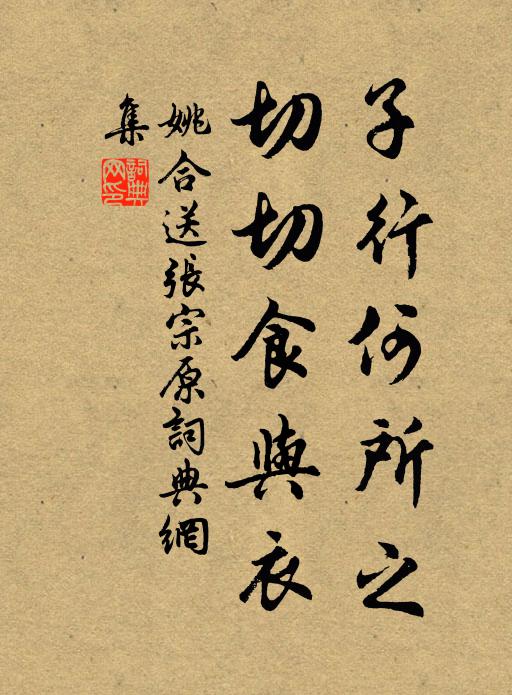 子行何所之
切切食與衣
姚合送張宗原詞典網
集
詞典网印